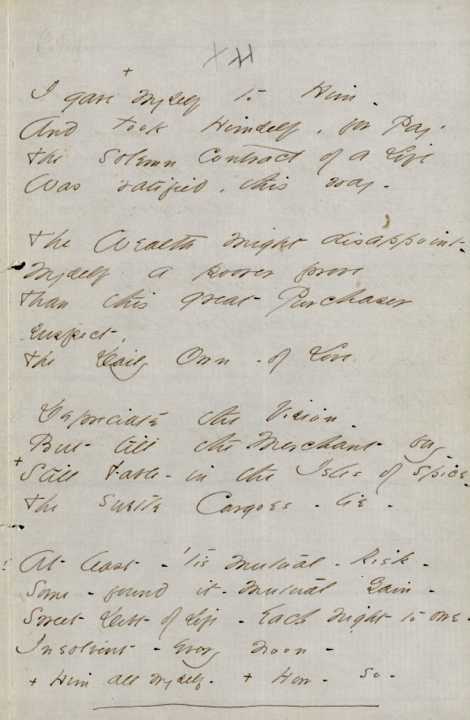 XII
+
I gave Myself to Him -
And took Himself, for Pay -
The Solemn Contract of a Life
Was ratified, this way -
The Wealth might disappoint -
Myself a poorer prove
Than this great Purchaser
suspect,
The Daily Own - of Love
Depreciate the Vision -
But till the Merchant buy -
+ Still Fable - in the Isles of Spice
The subtle Cargoes - lie -
At least - 'tis Mutual - Risk -
Some - found it - Mutual Gain -
Sweet Debt of Life - Each Night to owe -
Insolvent - every Noon -
+ Him all myself - + How - so -